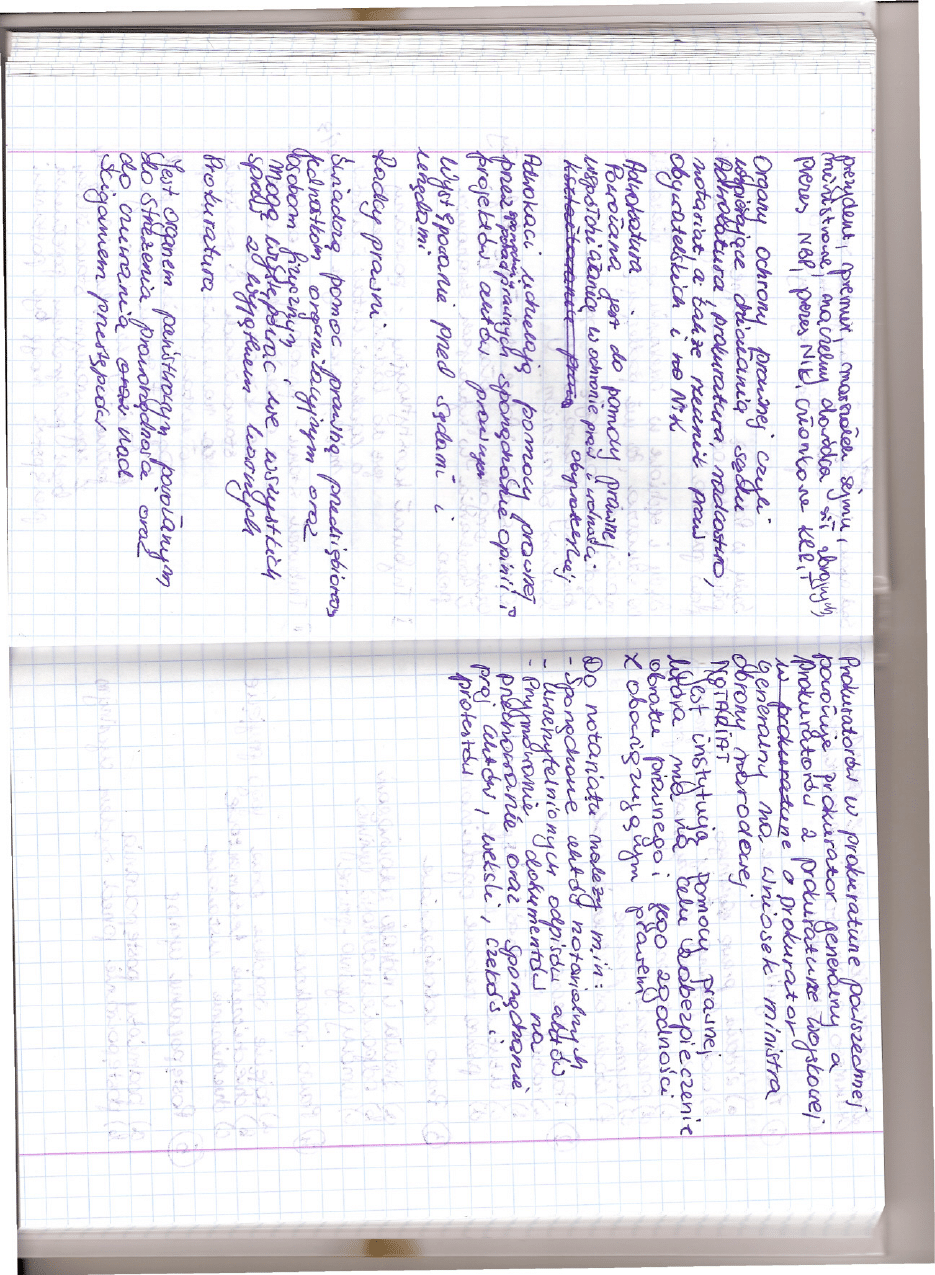 prezydent, premier, marszałek sejmu,
ministrowie, naczelny dowódca sił zbrojnych,
prezes NBP, prezes NIK, członkowie KRRiT
Organy ochrony prawnej czyli -
wspierające działania sądu
Adwokatura, prokuratura, radcostwo,
notariat, a także rzecznik praw
obywatelskich i no NIK
Adwokatura
Powołana jest do pomocy prawnej
współdziałania w ochronie praw i wolności
obywatelskiej
Adwokaci udzielają pomocy prawnej
przez sporządzanie opinii i
projektów aktów prawnych
Występowanie przed sądami i
urzędami
Radcy prawni
Świadczą pomoc prawną przedsiębiorcom
jednostkom organizacyjnym oraz
osobom fizycznym i
mogą występować we wszystkich
spraw z wyjątkiem karnych
Prokuratura
Jest organem państwowym powołanym
do strzeżenia praworządności oraz
do czuwania oraz nad
ściganiem przestępców
Prokuratorów w prokuraturze powszechnej
powołuje prokurator generalny a
prokuratorów z prokuraturze wojskowej
w prokuraturze o prokurator
generalny na wniosek ministra
obrony narodowej
NOTARIAT
Jest instytucją pomocy prawnej
która ma na celu zabezpieczenie
obrotu prawnego i jego zgodności
z obowiązującym prawem
Do notariatu należy m.in:
- Sporządzane aktów notarialnych
- Uwierzytelnionych odpisów aktów
- Przyjmowanie dokumentów na
przechowanie oraz sporządzanie
proj aktów, weksli, czeków i
protestów